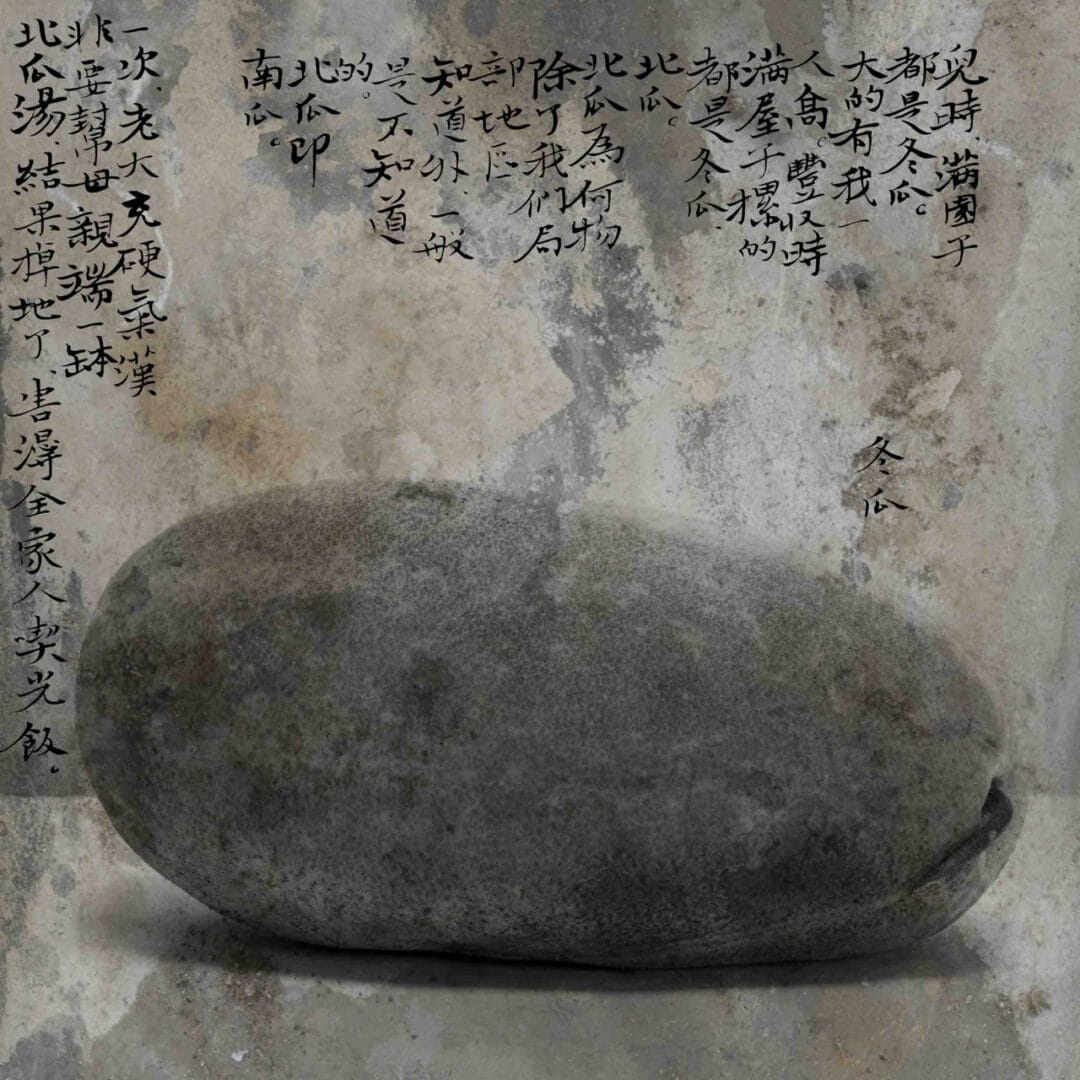 兒時、滿園子
都是冬瓜。
大的有我一
人高。豐收時
滿屋子摞的
都是冬瓜、
北瓜。
北瓜為何物
除了我们局
部地区
知道外、一般
是不知道
的。
北瓜即
南瓜。
一次、老大充硬氣漢
非要幫母親端一缽
北瓜湯、結果掉地了、害得全家人喫光飯。
冬瓜